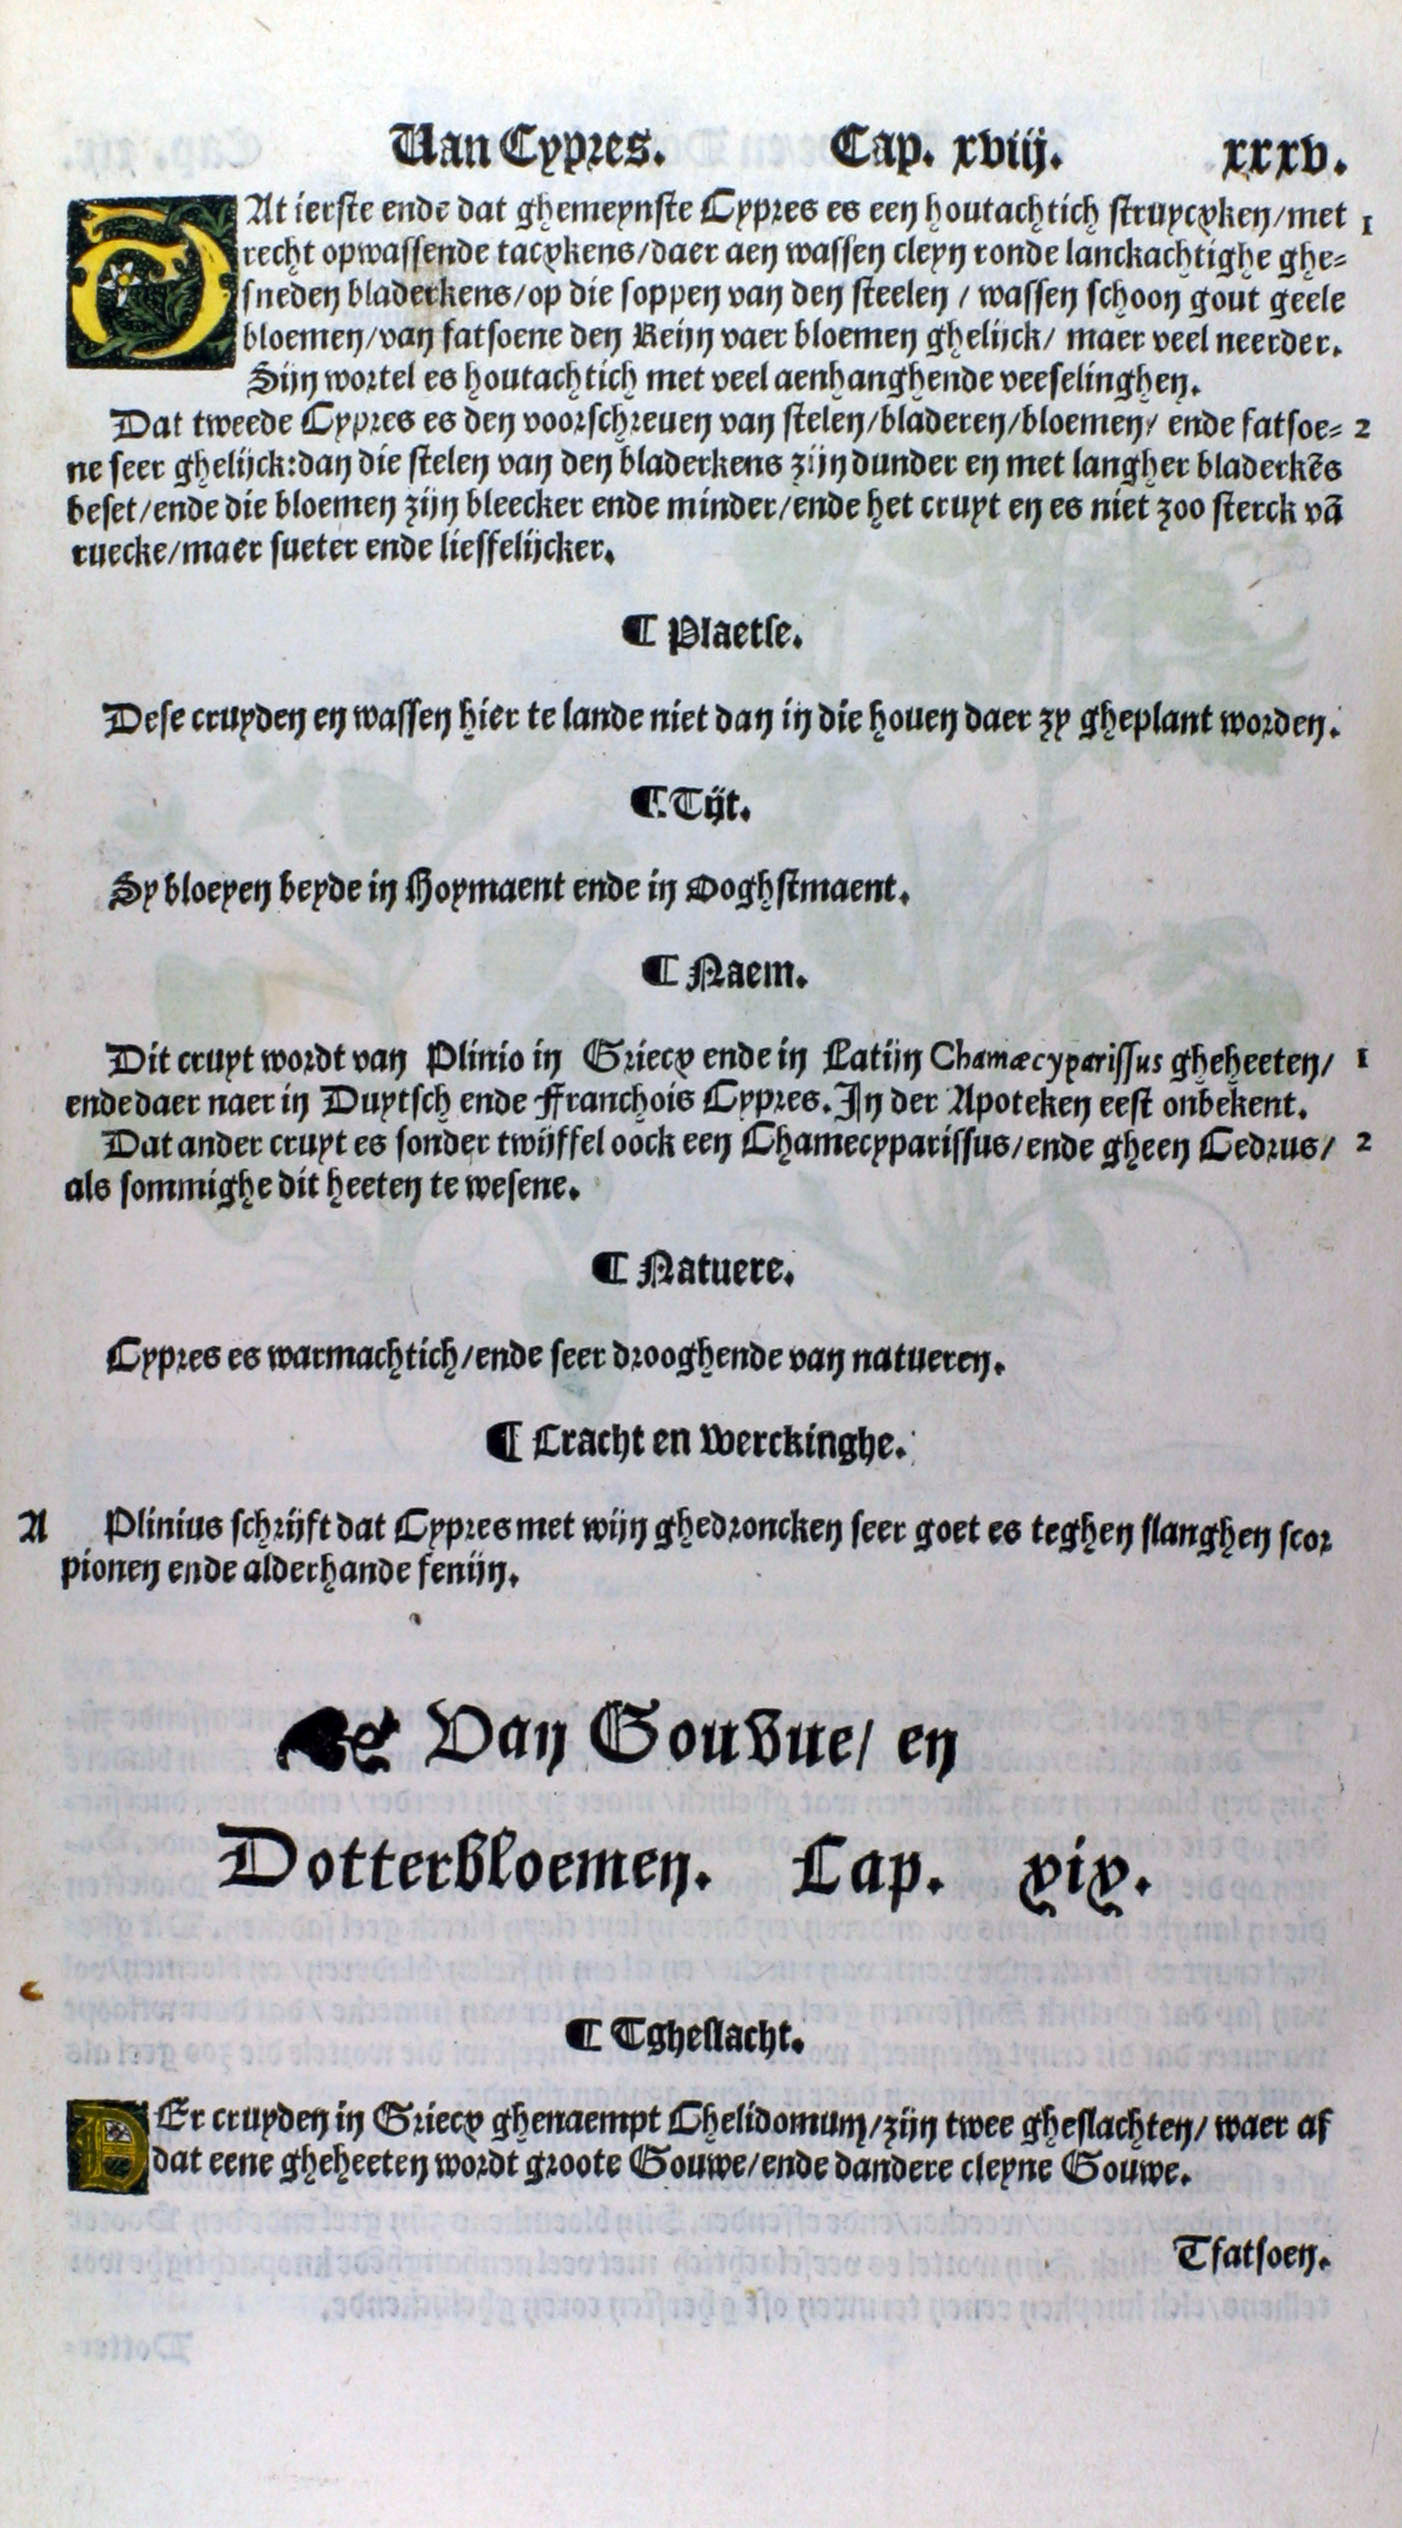 Van Cypres. Cap. xviij. xxxv.
DAt ierste ende dat ghemeynste Cypres es een houtachtich struycxken/met 1
recht opwassende tacxkens/daer aen wassen cleyn ronde lanckachtighe ghe-
sneden bladerkens/op die soppen van den steelen / wassen schoon gout geele
bloemen/van fatsoene den Reijn vaer bloemen ghelijck/ maer veel neerder.
Sijn wortel es houtachtich met veel aenhanghende veeselinghen.
Dat tweede Cypres es den voorschreuen van stelen/bladeren/bloemen/ ende fatsoe- 2
ne seer ghelijck:dan die stelen van den bladerkens zijn dunder en met langher bladerkēs
beset/ende die bloemen zijn bleecker ende minder/ende het cruyt en es niet zoo sterck vā
ruecke/maer sueter ende lieffelijcker.
¶ Plaetse.
Dese cruyden en wassen hier te lande niet dan in die houen daer zy gheplant worden.
¶ Tijt.
Sy bloeyen beyde in Hoymaent ende in Ooghstmaent.
¶ Naem.
Dit cruyt wordt van Plinio in Griecx ende in Latijn Chamæcyparissus gheheeten/ 1
ende daer naer in Duytsch ende Franchois Cypres. In der Apoteken eest onbekent.
Dat ander cruyt es sonder twijffel oock een Chamecyparissus/ende gheen Cedrus/ 2
als sommighe dit heeten te wesene.
¶ Natuere.
Cypres es warmachtich/ende seer drooghende van natueren.
¶ Cracht en Werckinghe.
A Plinius schrijft dat Cypres met wijn ghedroncken seer goet es teghen slanghen scor
pionen ende alderhande fenijn.
❧ Van Gouwe/ en
Dotterbloemen. Cap. xix.
¶ Tgheslacht.
DEr cruyden in Griecx ghenaempt Chelidomum/zijn twee gheslachten/ waer af
dat eene gheheeten wordt groote Gouwe/ende dandere cleyne Gouwe.
Tfatsoen.